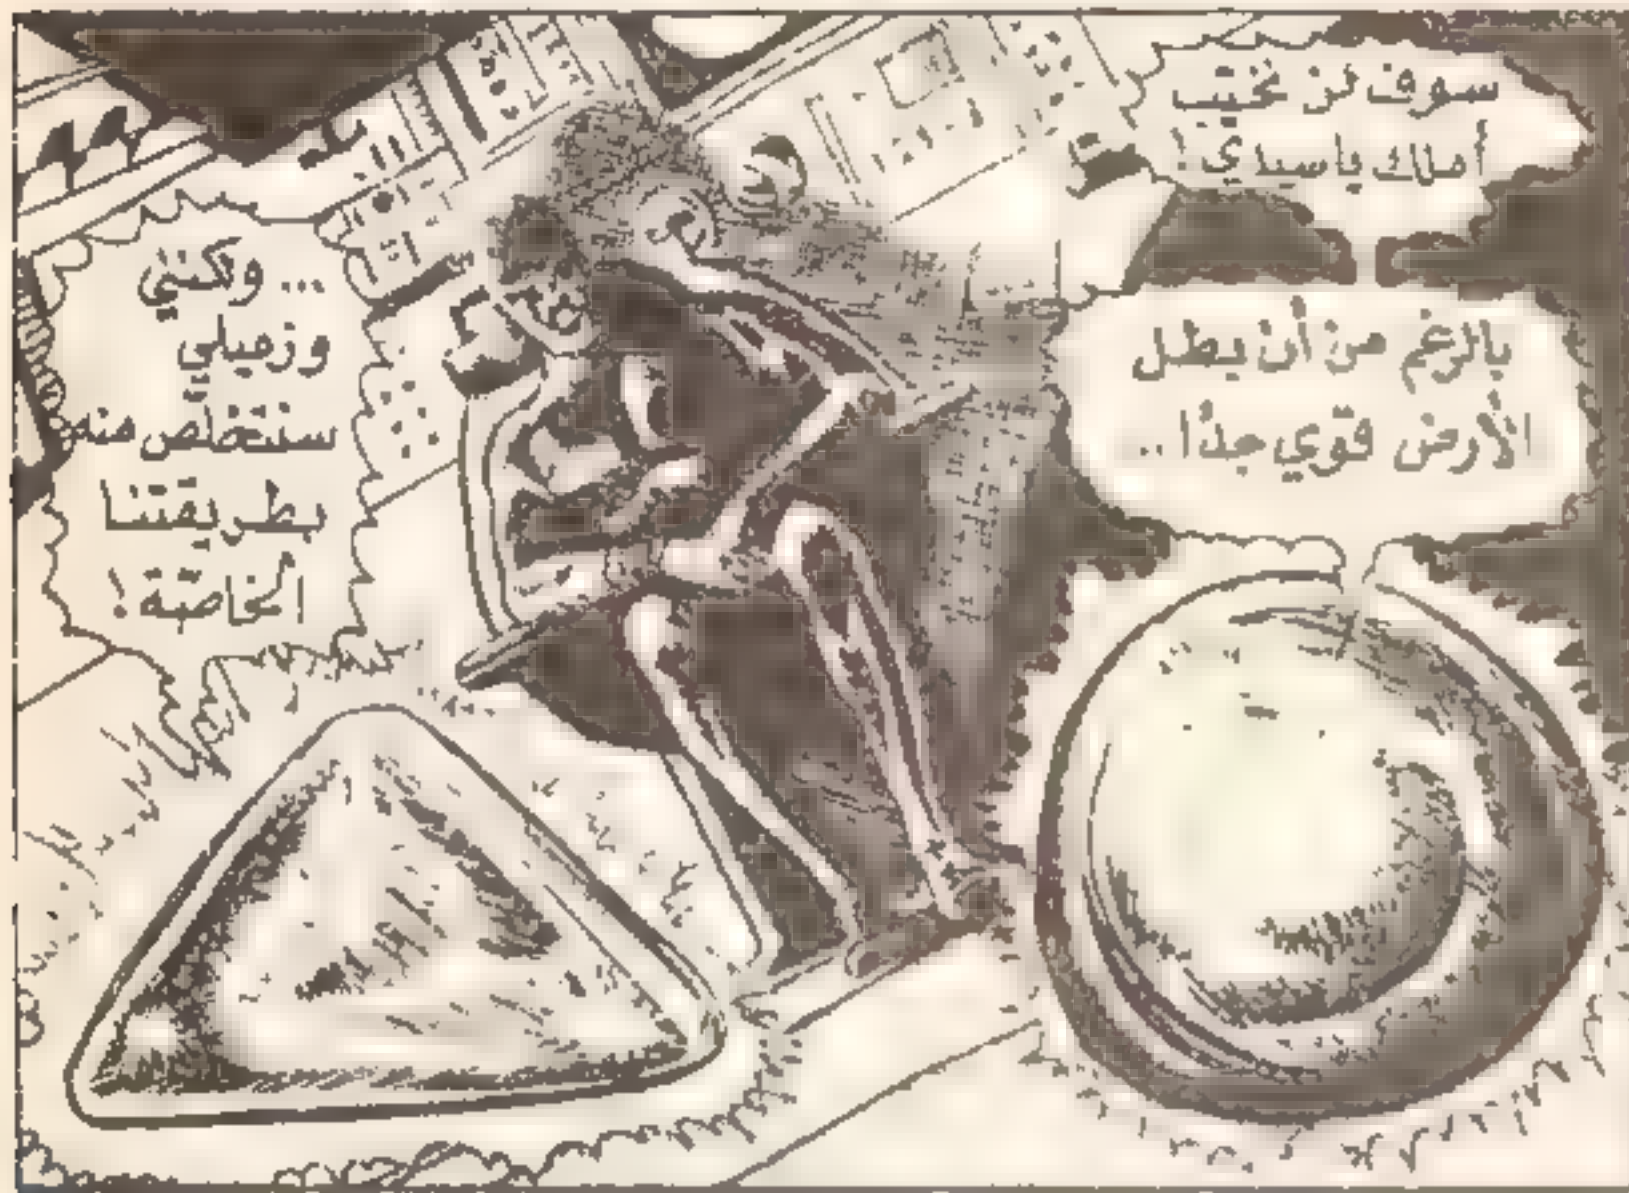 سوف لن نخيّب
أملك يا سيدي !
بالرغم من أن بطل
الأرض قوي جدًا ..
... ولكنني
وزميلي
سنتخلص منه
بطريقتنا
الخاصّة !